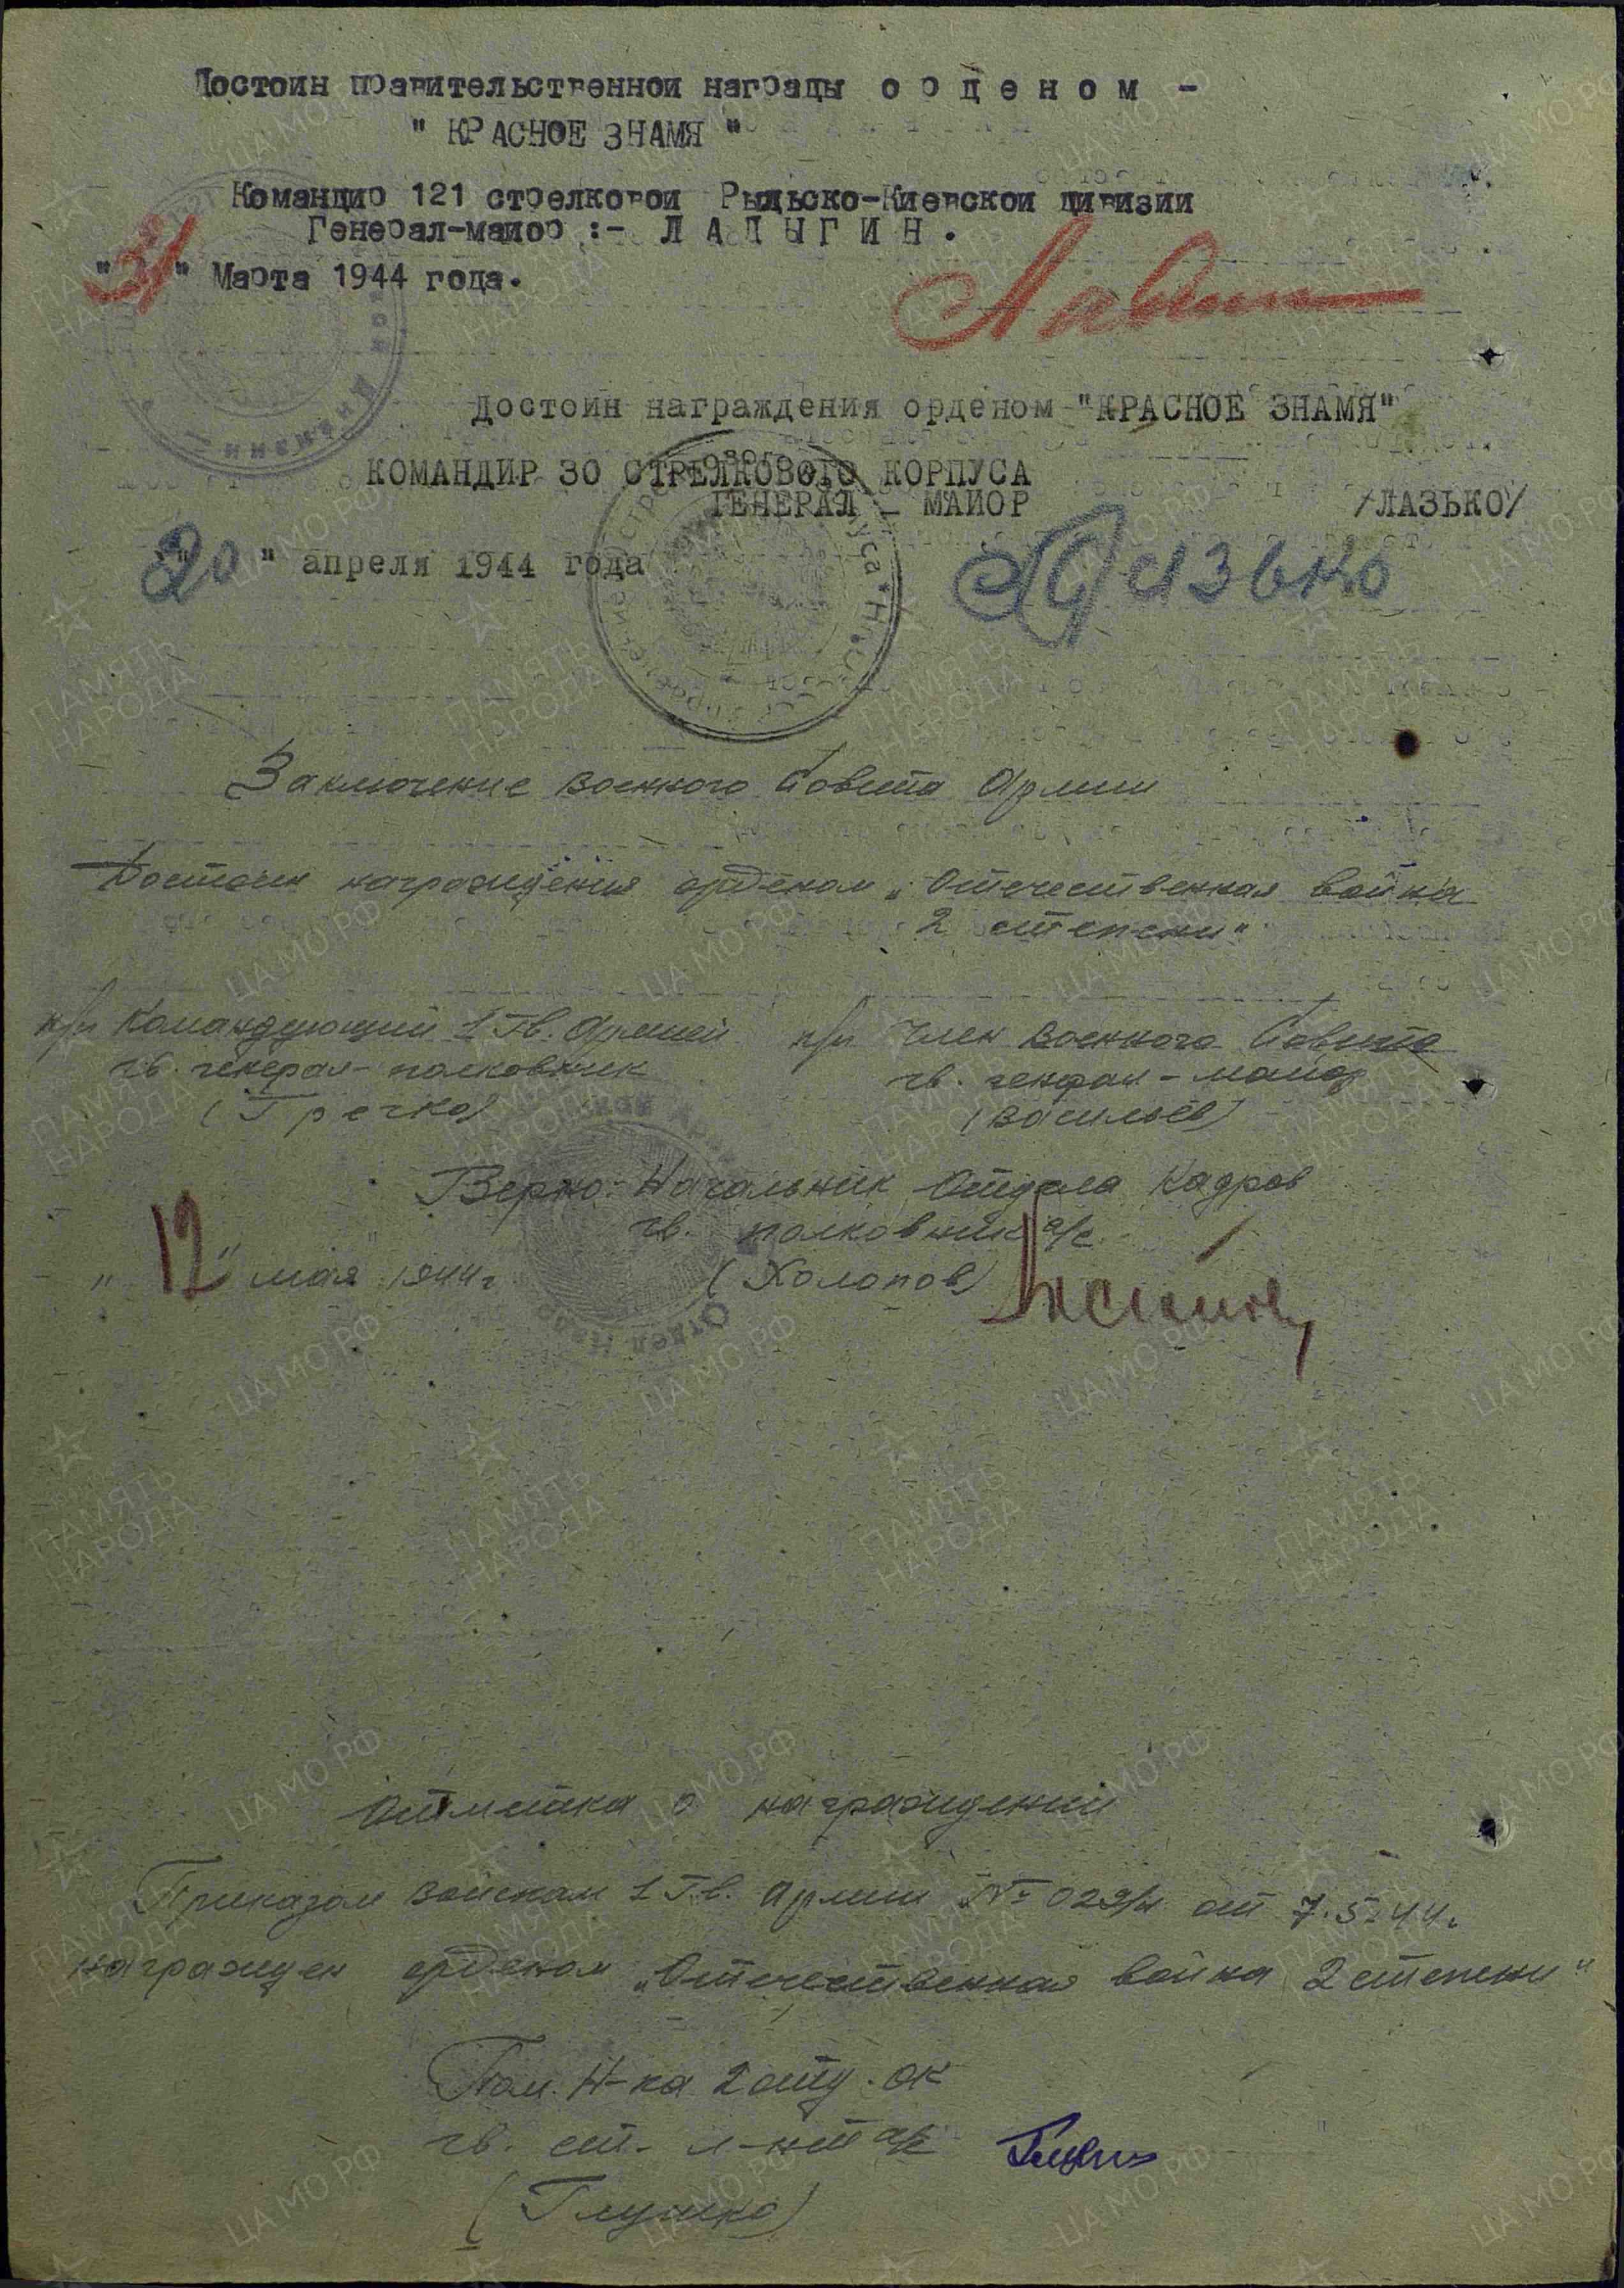 Достоин правительственной награды о р д е н о м -
" КРАСНОЕ ЗНАМЯ "
Командир 121 стрелковой Рыльско-Киевской дивизии
Генерал-майор :- Л А Д Ы Г И Н .
"31" Марта 1944 года.
Достоин награждения орденом "КРАСНОЕ ЗНАМЯ"
КОМАНДИР 30 СТРЕЛКОВОГО КОРПУСА
ГЕНЕРАЛ - МАЙОР /ЛАЗЬКО/
"20" апреля 1944 года
Лазько
Заключение Военного Совета Армии
Достоин награждения орденом „Отечественная война
2 степени"
п/п Командующий 1 Гв. Армией п/п Член Военного Совета
гв. генерал-полковник гв. генерал-майор
(Гречко) (Васильев)
Верно: Начальник Отдела Кадров
гв. полковник а/с
„12" мая 1944 г (Холопов)
Отметка о награждении
Приказом войскам 1 Гв. Армии № 029/н от 7.5.44 г.
награжден орденом „Отечественная война 2 степени"
Пом. Н-ка 2 отд. ОК
гв. ст. л-нт а/с
(Глушко)
ПАМЯТЬ НАРОДА
ЦА МО РФ